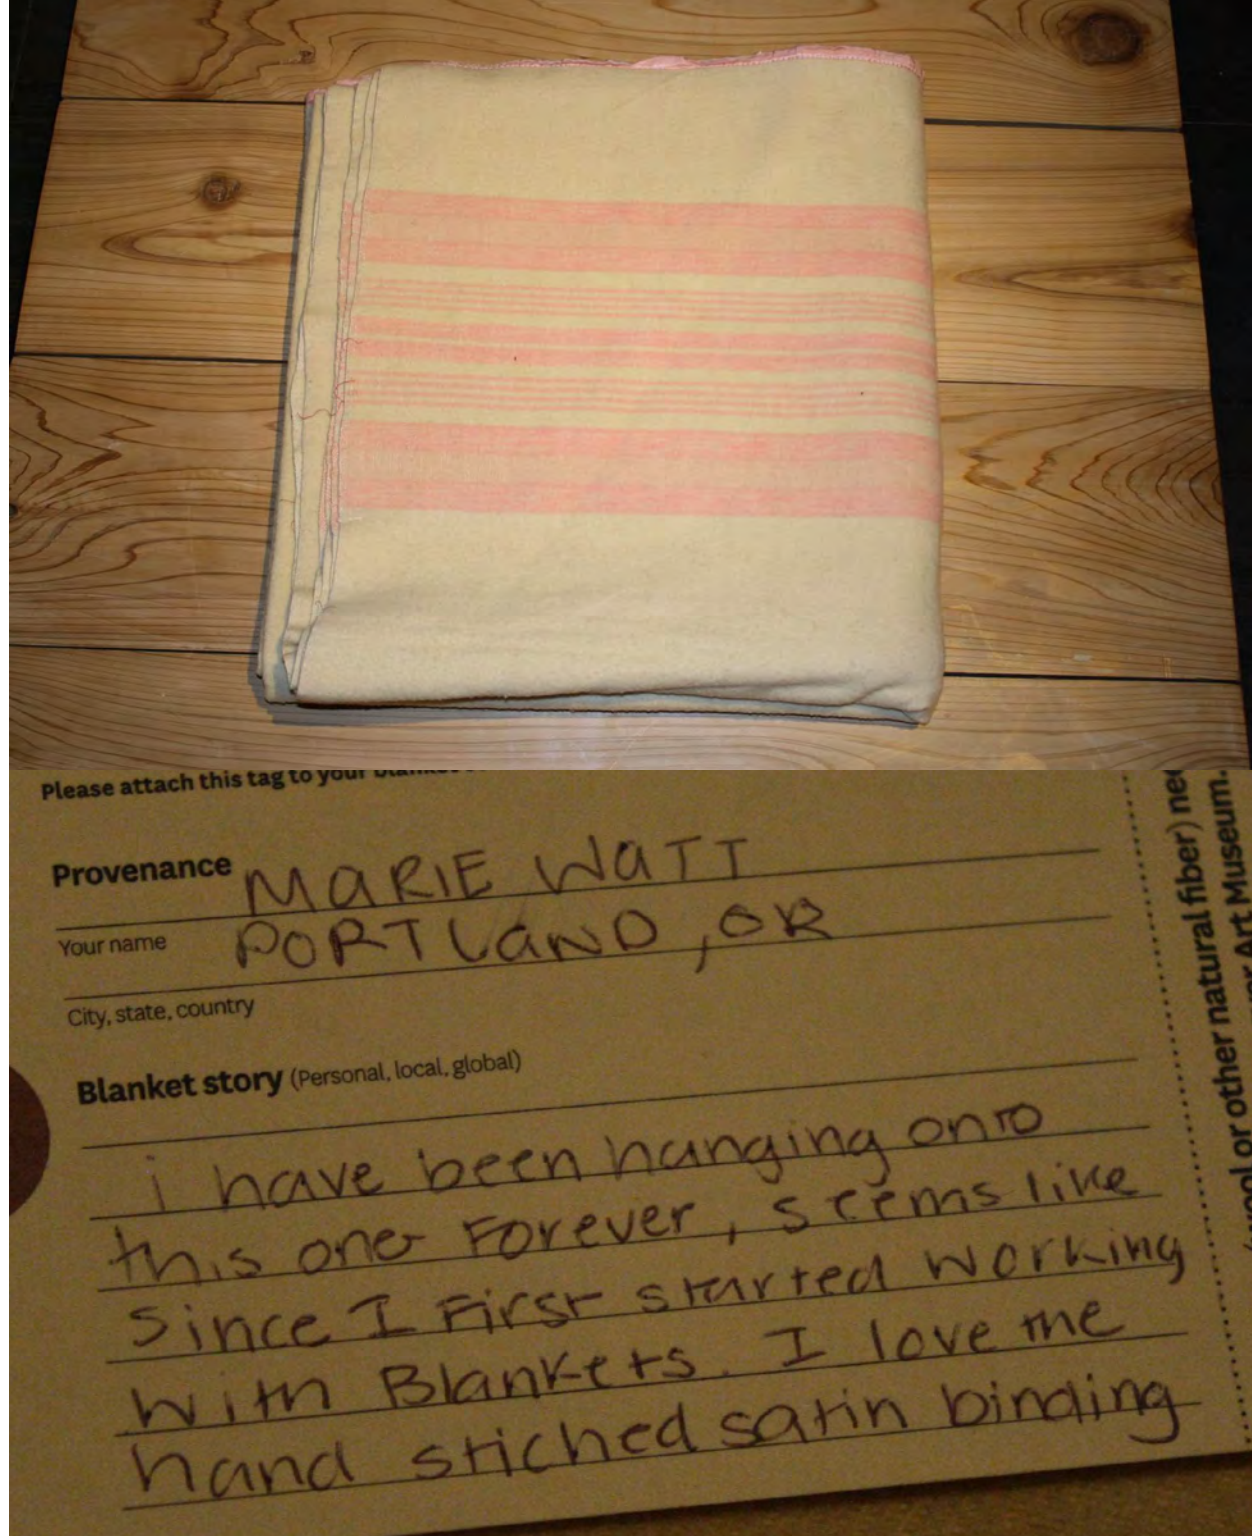 Please attach this tag to your blanket
Provenance MARIE WATT
Your name PORTLAND, OR
City, state, country
Blanket story (Personal, local, global)
i have been hanging onto
this one Forever, seems like
since I First started working
with Blankets. I love the
hand stiched satin binding
ool or other natural fiber) ne
Art Museum.